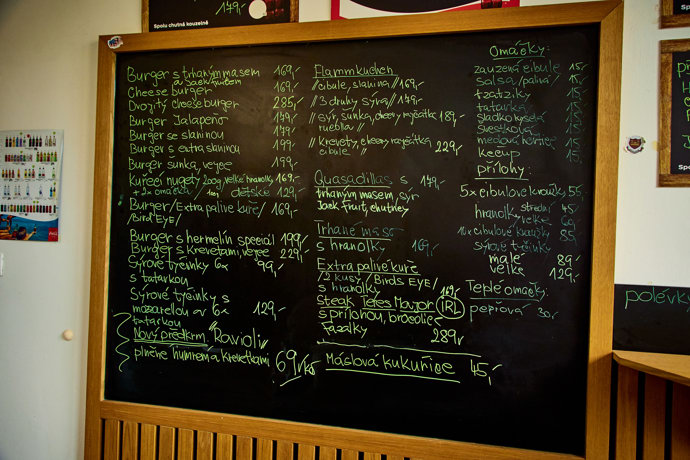 Spolu chutná kouzelně
179,-
Burger s trhaným masem 169,-
Cheese burger 169,-
Dvojitý cheese burger 285,-
Burger Jalapeño 179,-
Burger se slaninou 179,-
Burger s extra slaninou 199,-
Burger šunka, vejce 199,-
Kuřecí nugety 200g velké hranolky 169,-
+ 2x omáčka / dětské 129,-
Burger/Extra pálivé kuře/ 169,-
/Bird EYE/
Burger s hermelín speciál 199,-
Burger s Krevetami, vejce 229,-
Sýrové tyčinky 6x 99,-
s tatarkou
Sýrové tyčinky s
mozarellou a 6x 129,-
tatarkou
Nový předkrm. "Ravioli"
plněné humrem a krevetkami 69,-Kč
Flammkuchen
/cibule, slanina/ 169,-
//3 druhy sýra// 179,-
/sýr, šunka, cherry rajčátka 189,-
// Krevety, cherry rajčátka
cibule // 229,-
Quasadillas s 179,-
trhaným masem, sýr
Jack fruit, chutney
Trhané maso
s hranolky 169,-
Extra pálivé kuře
/2 kusy / Birds EYE/
s hranolky 169,-
Steak Teres Major IRL
s přílohou, brocolie
fazolky 289,-
Máslová kukuřice 45,-
Omáčky:
zauzená cibule 15,-
salsa /pálivá/ 15,-
tzatziky 15,-
tatarka 15,-
sladkokyselá 15,-
švestková 15,-
medová hořčice 15,-
Kečup 15,-
přílohy:
5x cibulové kroužky 55,-
hranolky střední 45,-
velké 60,-
10x cibulové kroužky 85,-
sýrové tyčinky
malé 89,-
velké 129,-
Teplé omáčky:
pepřová 30,-
polévky